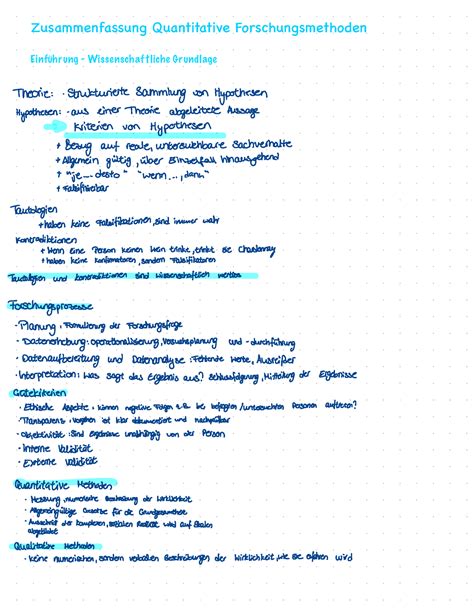 Zusammenfassung Quantitative Forschungsmethoden
Einführung - Wissenschaftliche Grundlage
Theorie: · Strukturierte Sammlung von Hypothesen
Hypothesen: · aus einer Theorie abgeleitete Aussage
Kriterien von Hypothesen
+ Bezug auf reale, untersuchbare Sachverhalte
+ Allgemein gültig, über Einzelfall hinausgehend
+ "je ... desto" "wenn ..., dann"
+ Falsifizierbar
Tautologien
+ haben keine Falsifikatoren, sind immer wahr
Kontradiktionen
+ Wenn eine Person keinen Wein trinkt, trinkt sie Chardonnay
+ haben keine Konfirmatoren, sondern Falsifikatoren
Tautologien und Kontradiktionen sind wissenschaftlich wertlos
Forschungsprozesse
· Planung: Formulierung der Forschungsfrage
· Datenerhebung: Operationalisierung, Versuchsplanung und -durchführung
· Datenaufbereitung und Datenanalyse: Fehlende Werte, Ausreißer
· Interpretation: Was sagt das Ergebnis aus? Schlussfolgerung, Mitteilung der Ergebnisse
Gütekriterien
· Ethische Aspekte: können negative Folgen z.B. bei befragten / untersuchten Personen auftreten?
· Transparenz: Vorgehen ist klar dokumentiert und nachprüfbar
· Objektivität: Sind Ergebnisse unabhängig von der Person
· Interne Validität
· Externe Validität
Quantitative Methoden
· Messung, numerische Beschreibung der Wirklichkeit
· Allgemeingültige Gesetze für die Grundgesamtheit
· Ausschnitt der komplexen, sozialen Realität wird auf Skalen
abgebildet
Qualitative Methoden
· Keine numerischen, sondern verbalen Beschreibungen der Wirklichkeit, wie sie erfahren wird